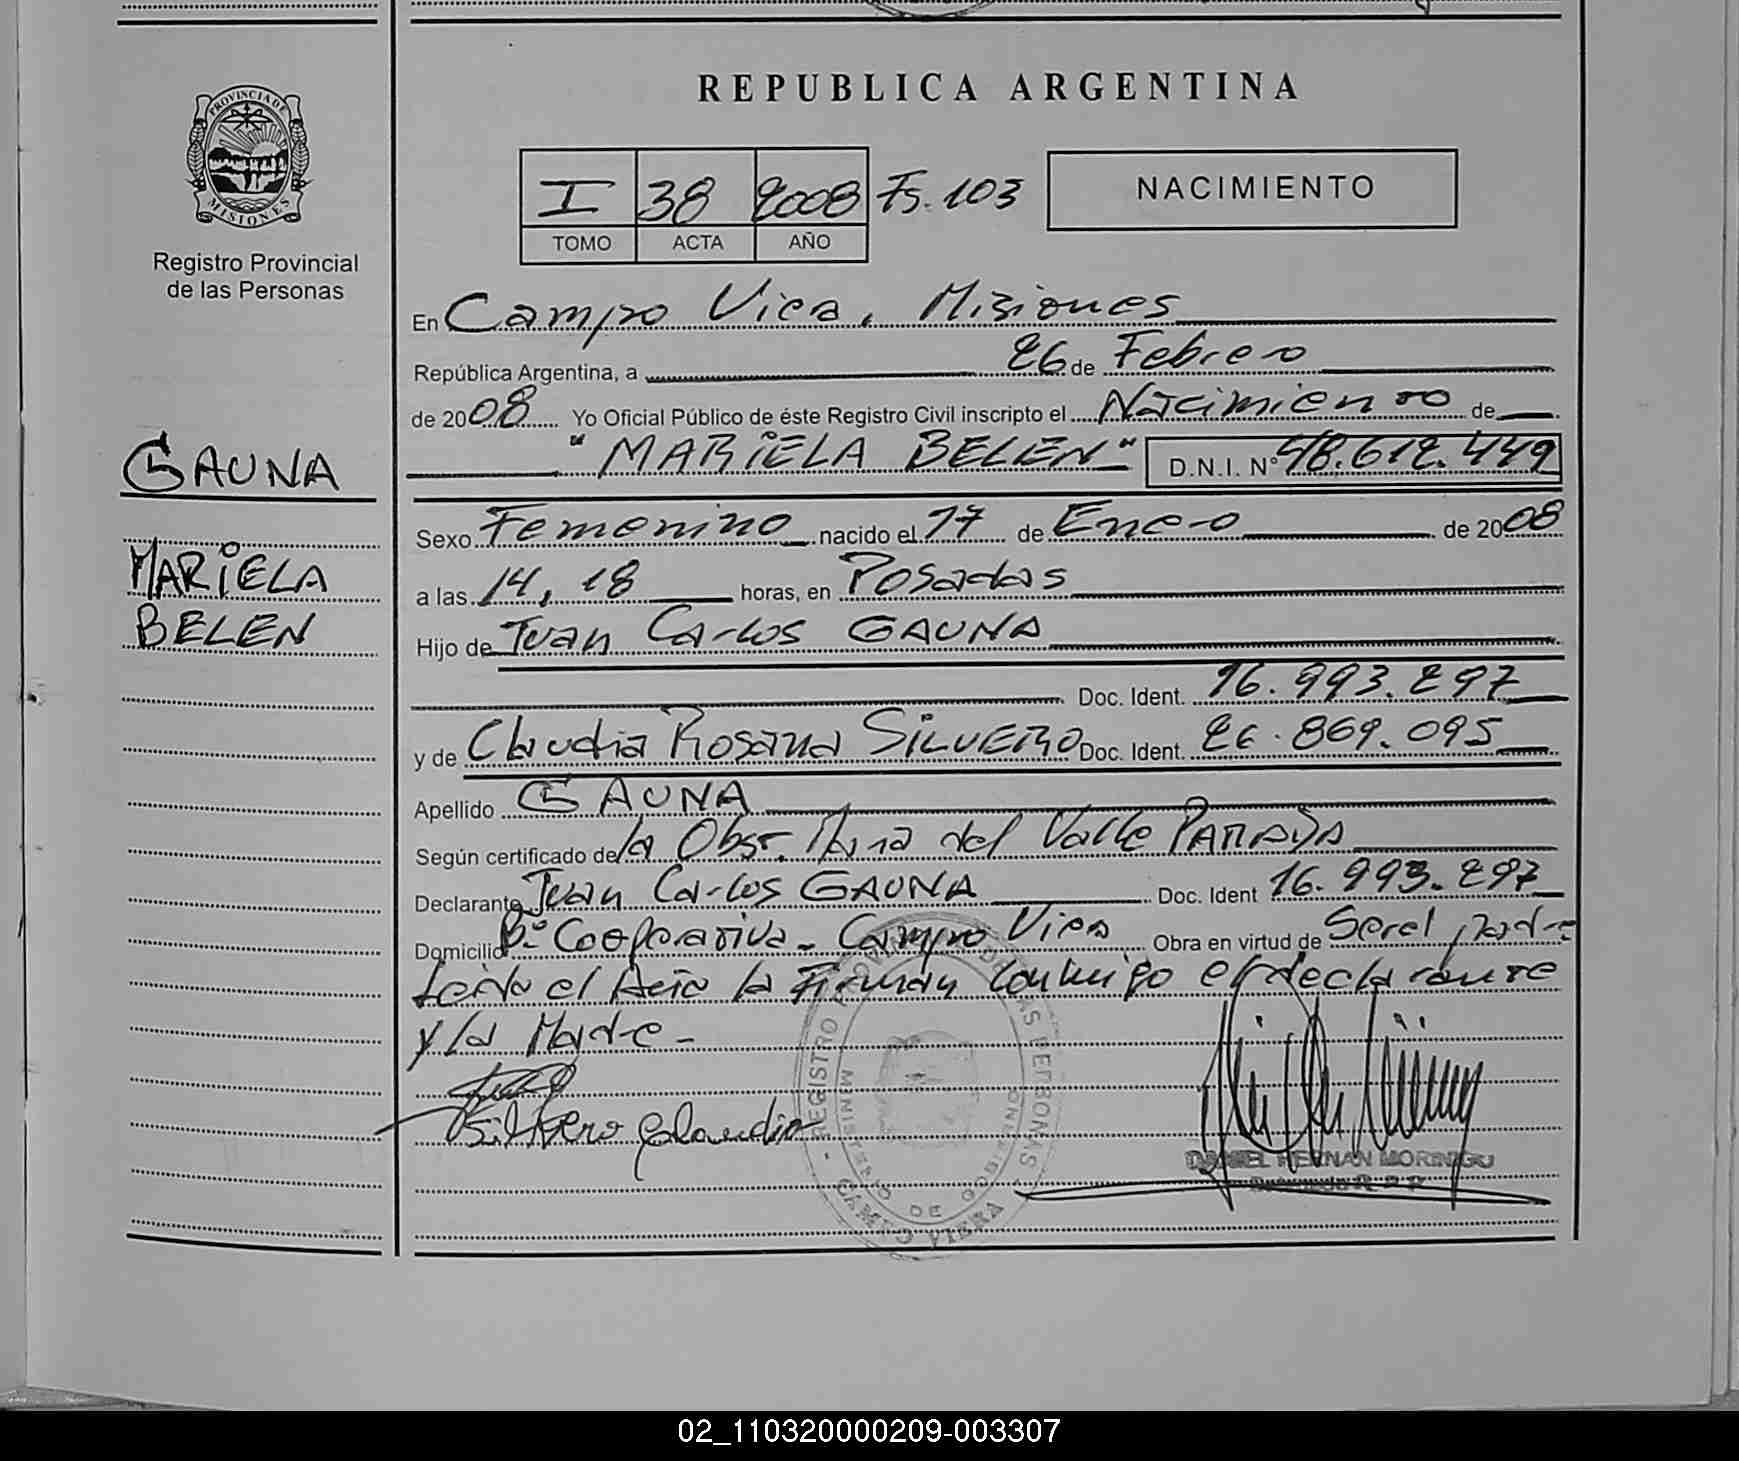 REPUBLICA ARGENTINA
PROVINCIA DE
MISIONES
Registro Provincial
de las Personas
I 38 2008 Fs. 103
TOMO ACTA AÑO
NACIMIENTO
En Campo Viera, Misiones
República Argentina, a 26 de Febrero
de 2008 Yo Oficial Público de éste Registro Civil inscripto el Nacimiento de
"MARIELA BELEN" D.N.I. N° 48.612.449
GAUNA
MARIELA
BELEN
Sexo Femenino nacido el 17 de Enero de 2008
a las 14,18 horas, en Posadas
Hijo de Juan Carlos GAUNA
Doc. Ident. 16.993.297
y de Claudia Rosana SILVERO Doc. Ident. 26.869.095
Apellido GAUNA
Según certificado de la Obst. Maria del Valle PARADA
Declarante Juan Carlos GAUNA Doc. Ident 16.993.297
Domicilio B° Cooperativa - Campo Viera Obra en virtud de Ser el padre
Leida el Acta la Firman conmigo el declarante
y la Madre -
Silvero Claudia
REGISTRO PROVINCIAL DE LAS PERSONAS
MINISTERIO DE GOBIERNO
CAMPO VIERA
DANIEL HERNAN MORINIGO
02_110320000209-003307